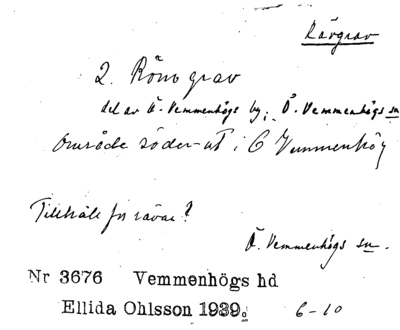 Rävgrav
2. Rävo grav
del av Ö. Vemmenhögs by; Ö. Vemmenhögs sn
Område söder-ut i Ö Vemmenhög
Tillhåll för rävar?
Ö. Vemmenhögs sn.
Nr 3676 Vemmenhögs hd
Ellida Ohlsson 1939. 6-10